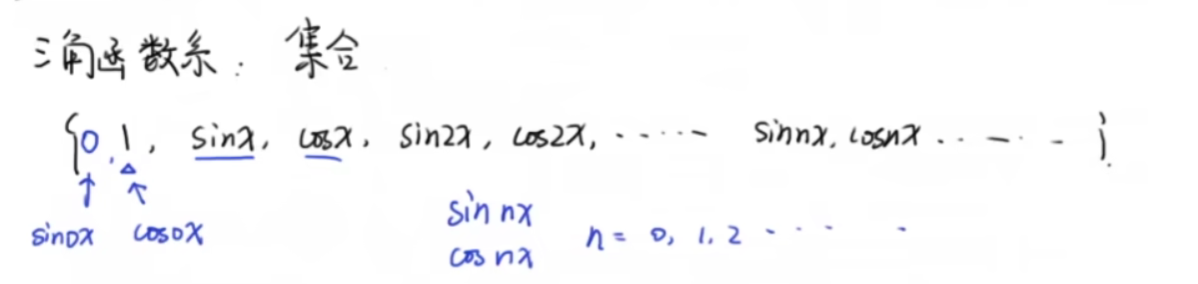 三角函数系: 集合
{0, 1, sinx, cosx, sin2x, cos2x, ····· sinnx, cosnx ······}
↑ ↑
sin0x cos0x
sin nx
cos nx
n = 0, 1, 2 ···· ·